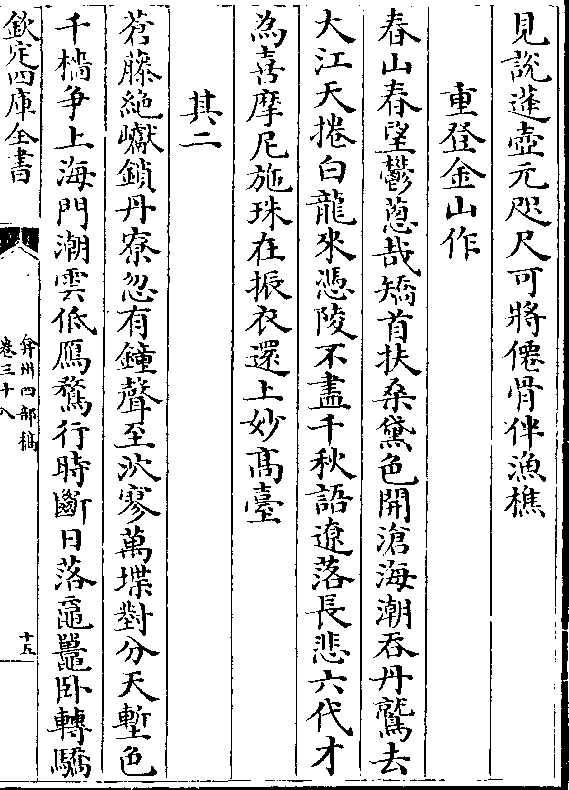 見說蓬壺元咫尺可將僊骨伴漁樵
重登金山作
春山春望鬱蔥哉矯首扶桑黛色開滄海潮吞丹鷲去
大江天捲白龍來憑陵不盡千秋語遼落長悲六代才
為喜摩尼施珠在振衣還上妙髙臺
其二
蒼藤絶巘鎖丹寮忽有鐘聲至泬寥萬堞對分天塹色
千檣爭上海門潮雲低鴈鶩行時斷日落黿鼉卧轉驕
欽定四庫全書
弇州四部稿
卷三十八
十五